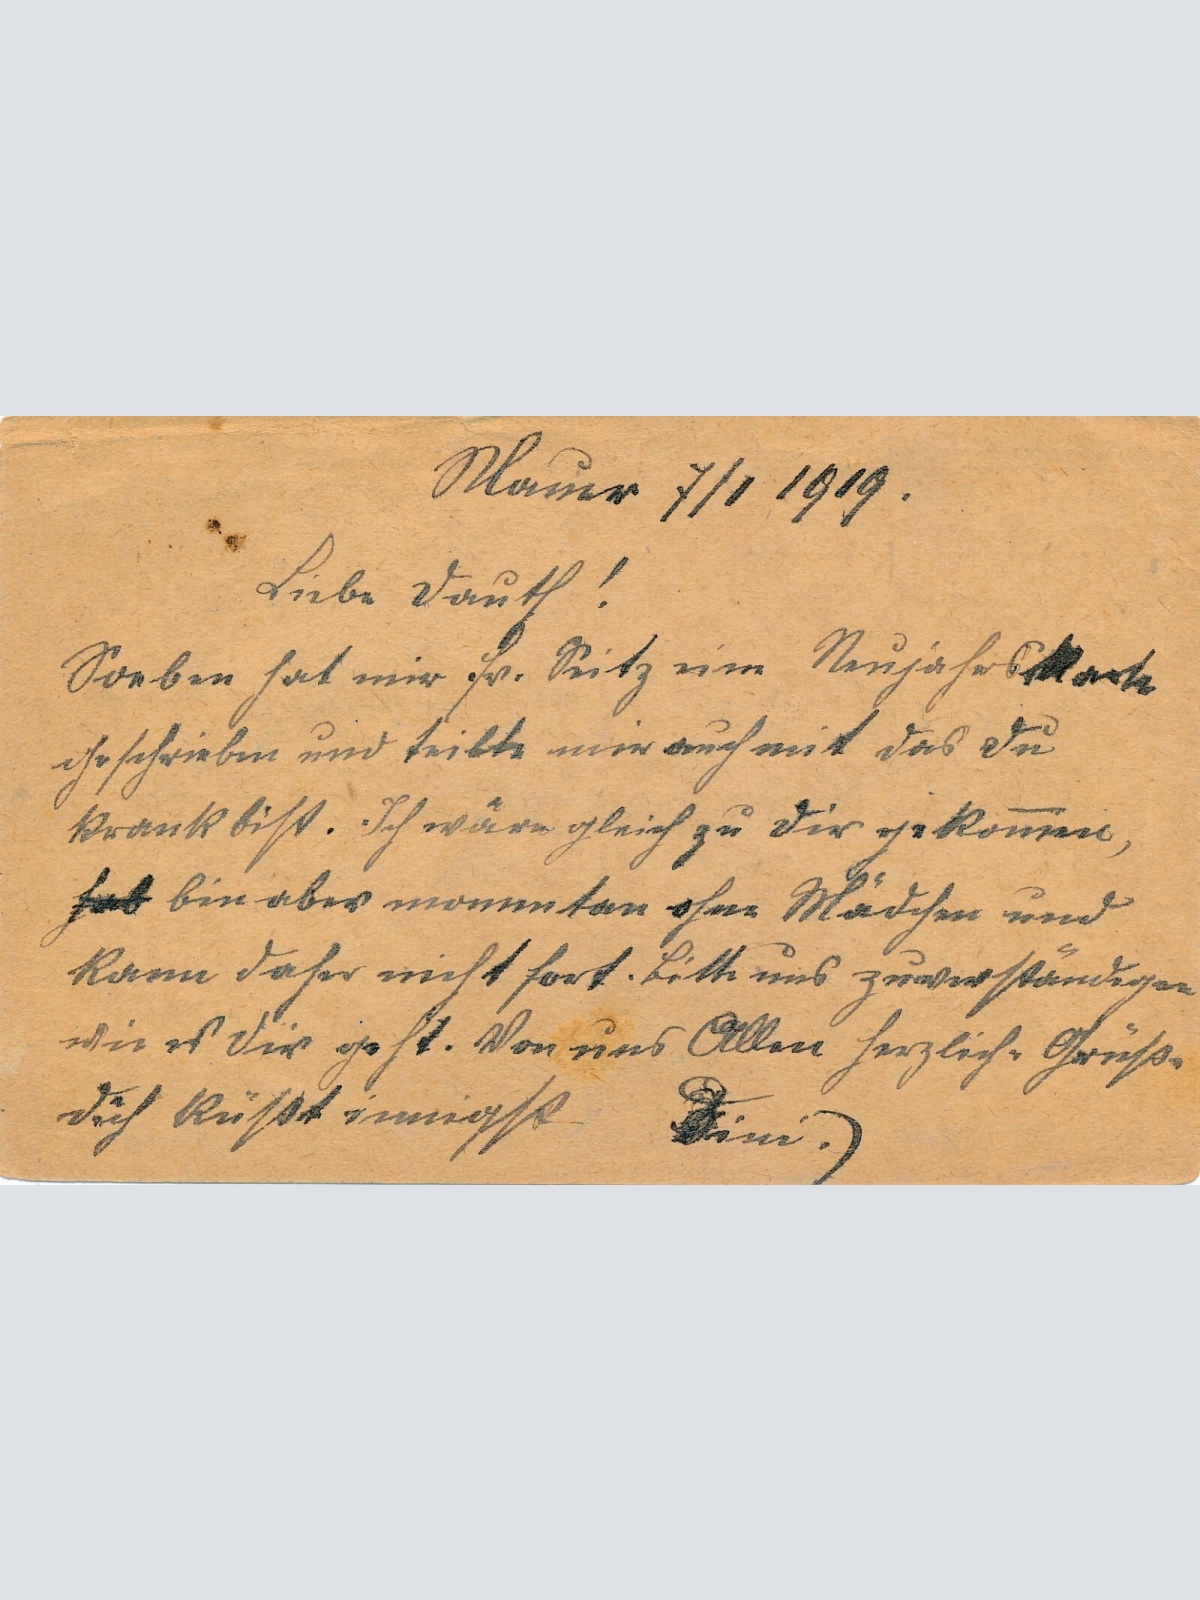 Mauer 7/1 1919.
Liebe Dauth!
Soeben hat mir Fr. Seitz eine Neujahrskarte
geschrieben und teilte mir auch mit das Du
krank bist. Ich wäre gleich zu Dir gekom̅en,
hab bin aber momentan ohne Mädchen und
kann daher nicht fort. Bitte uns zuverständigen
wie es Dir geht. Von uns Allen herzlich. Grüße
Dich küßt innigst Tini.